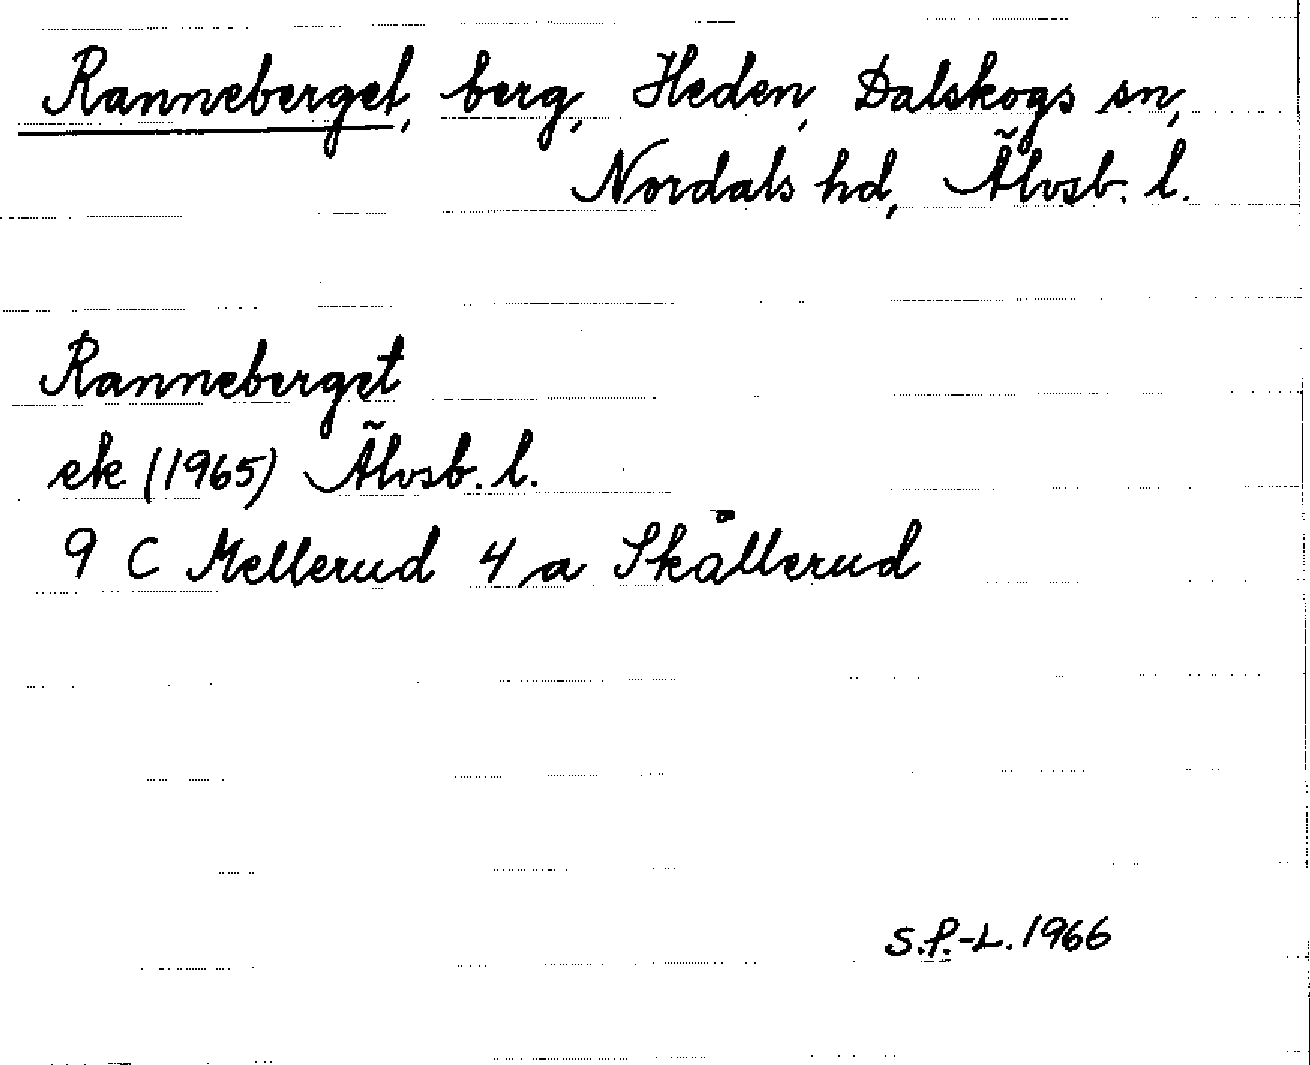 Ranneberget, berg, Heden, Dalskogs sn,
Nordals hd, Älvsb. l.
Ranneberget
ek (1965) Älvsb. l.
9 C Mellerud 4 a Skållerud
S.P.-L. 1966